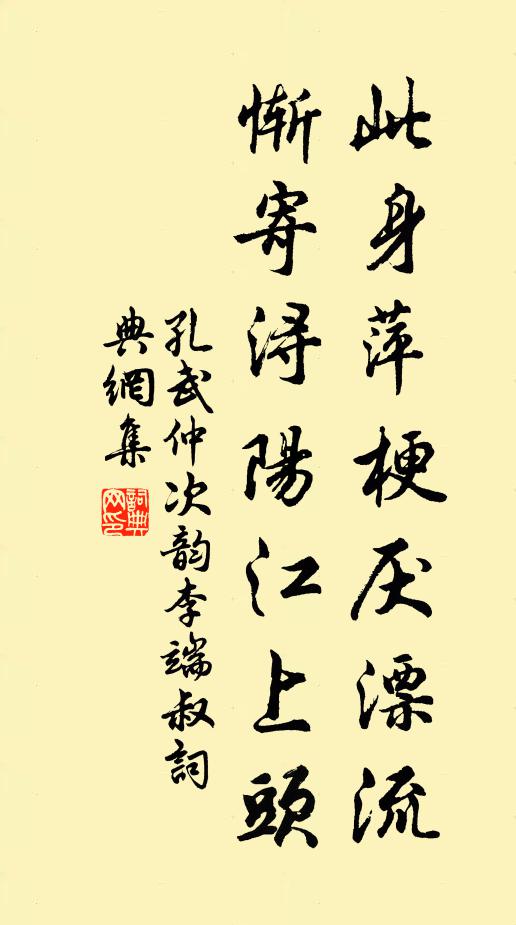 此身萍梗厌漂流
惭寄浔陽江上頭
孔武仲次韵李端叔詞
典網集
詞典
网印